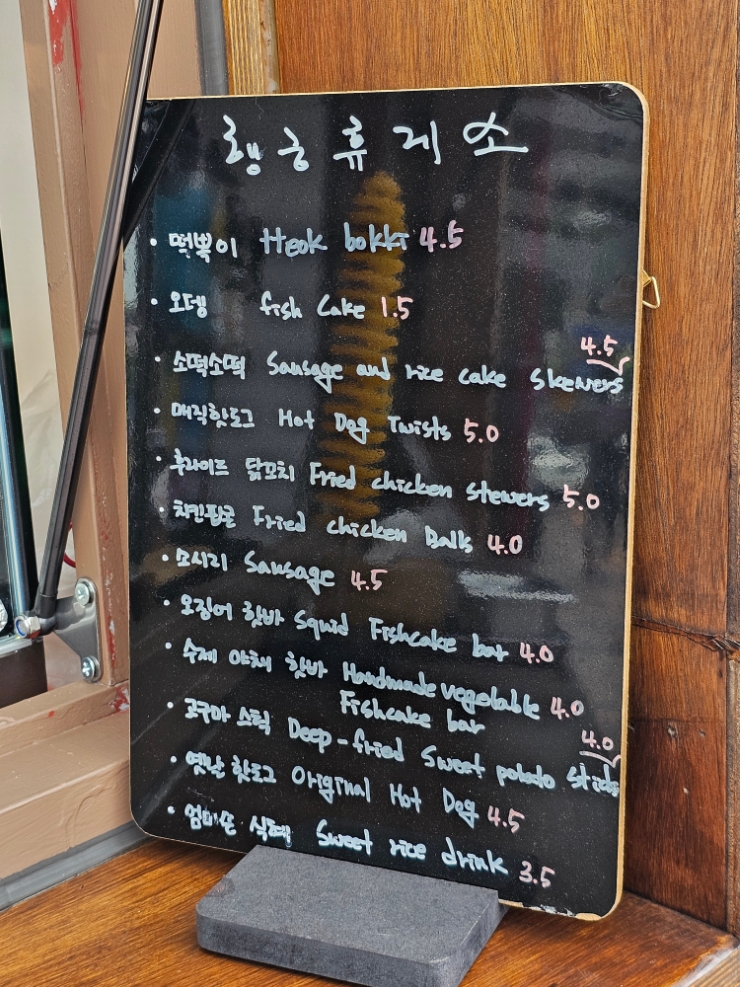 행궁휴게소
• 떡볶이 Tteok bokki 4.5
• 오뎅 fish Cake 1.5
• 소떡소떡 Sausage and rice cake skewers 4.5
• 매직핫도그 Hot Dog Twists 5.0
• 후라이드 닭꼬치 Fried chicken stewers 5.0
• 치킨팝콘 Fried chicken Balls 4.0
• 소시지 Sausage 4.5
• 오징어 핫바 Squid Fishcake bar 4.0
• 수제 야채 핫바 Handmade vegetable 4.0
Fishcake bar
• 고구마 스틱 Deep-fried Sweet potato sticks 4.0
• 옛날 핫도그 Original Hot Dog 4.5
• 엄마손 식혜 Sweet rice drink 3.5